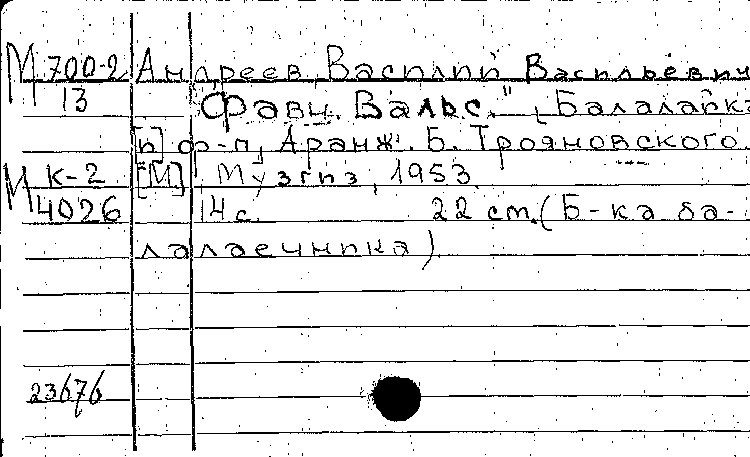 М 700-2 Андреев, Василий Васильевич
13 "Фавн. Вальс." [Балалайка
[и] ф-п], Аранж. Б. Трояновского.
М К-2 [М], Музгиз, 1953
4026 14 с. 22 см. (Б-ка ба-
лалаечника)
23676